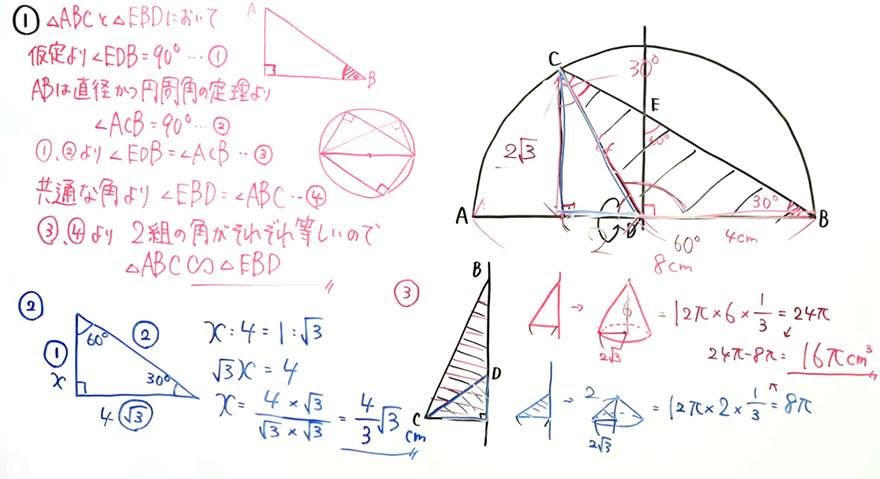 ① △ABCと△EBDにおいて
仮定より∠EDB=90°…①
ABは直径かつ円周角の定理より
∠ACB=90°…②
①、②より∠EDB=∠ACB…③
共通な角より∠EBD=∠ABC…④
③、④より 2組の角がそれぞれ等しいので
△ABC∽△EBD
A
B
C
30°
E
60°
2√3
4
30°
A
2
D
B
60°
4cm
8cm
②
①
②
60°
x
30°
4
√3
x:4=1:√3
√3x=4
x=4×√3/√3×√3=4/3√3
cm
③
B
D
C
→
6
2√3
=12π×6×1/3=24π
24π-8π=16πcm³
→
2
2√3
=12π×2×1/3=8π
π